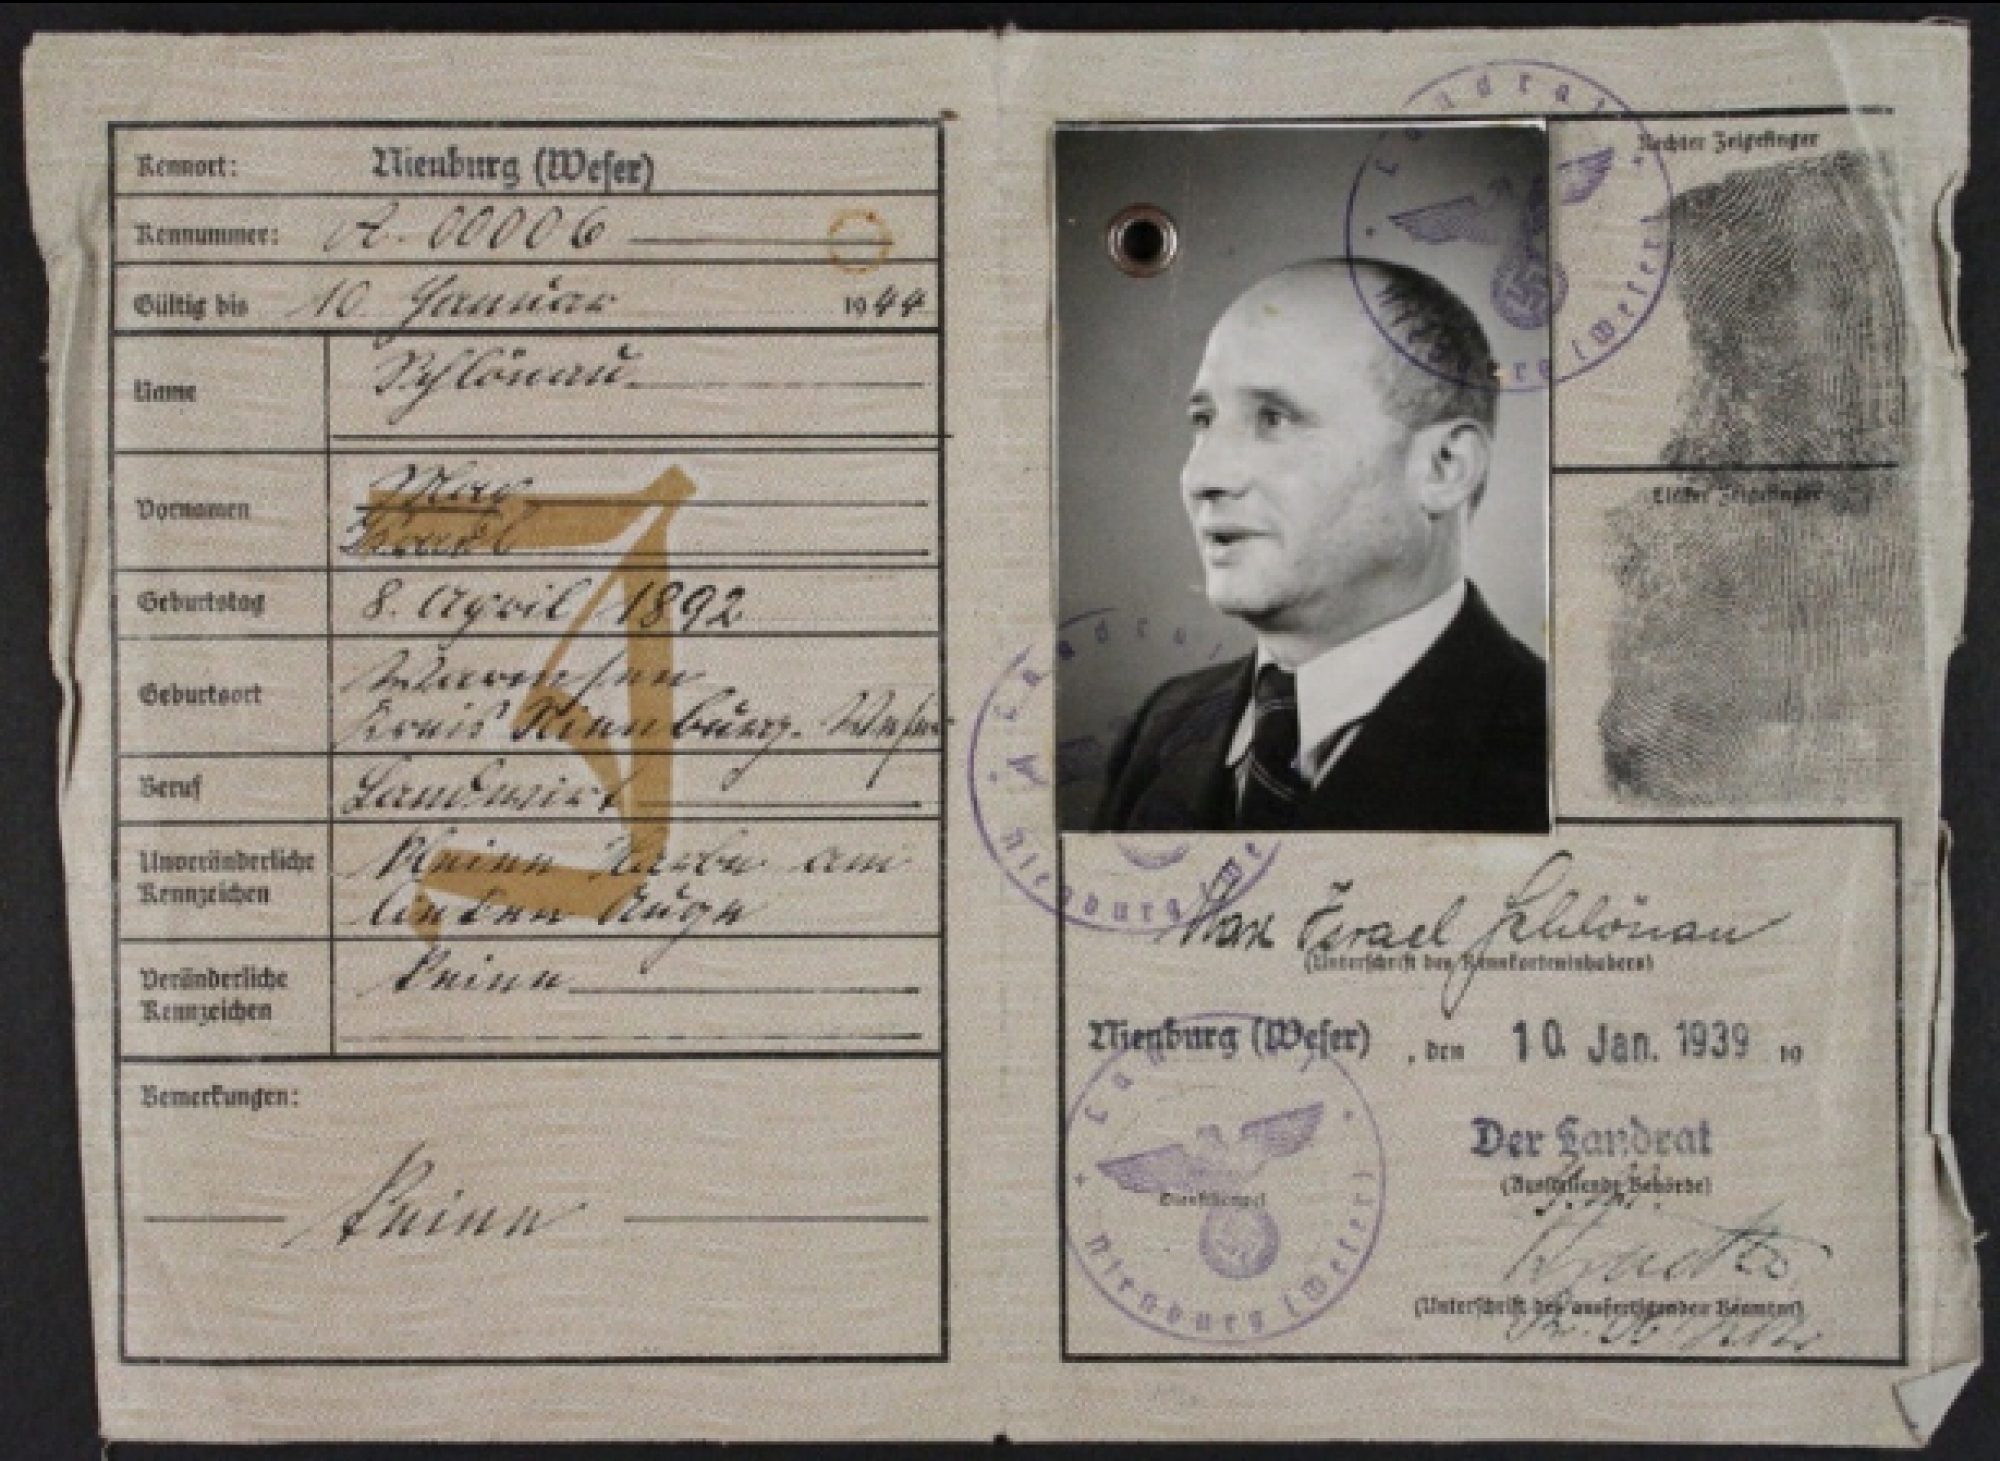 Kennort: Nienburg (Weser)
Kennummer: A. 00006
Gültig bis 10. Januar 1944
Name Schlönau
Vornamen Max
Israel
Geburtstag 8. April 1892
Geburtsort Warmsen
Kreis Nienburg-Weser
Beruf Landwirt
Unveränderliche Kennzeichen Kleine Narbe am
linken Auge
Veränderliche Kennzeichen Keine
Bemerkungen:
Keine
J
Rechter Zeigefinger
Linker Zeigefinger
Landrat
Nienburg (Weser)
Landrat
Nienburg (We
Max Israel Schlönau
(Unterschrift des Kennkarteninhabers)
Nienburg (Weser), den 10. Jan. 1939 19
Der Landrat
(Ausstellende Behörde)
Dienststempel
Landrat
Nienburg (Weser)
(Unterschrift des ausfertigenden Beamten)